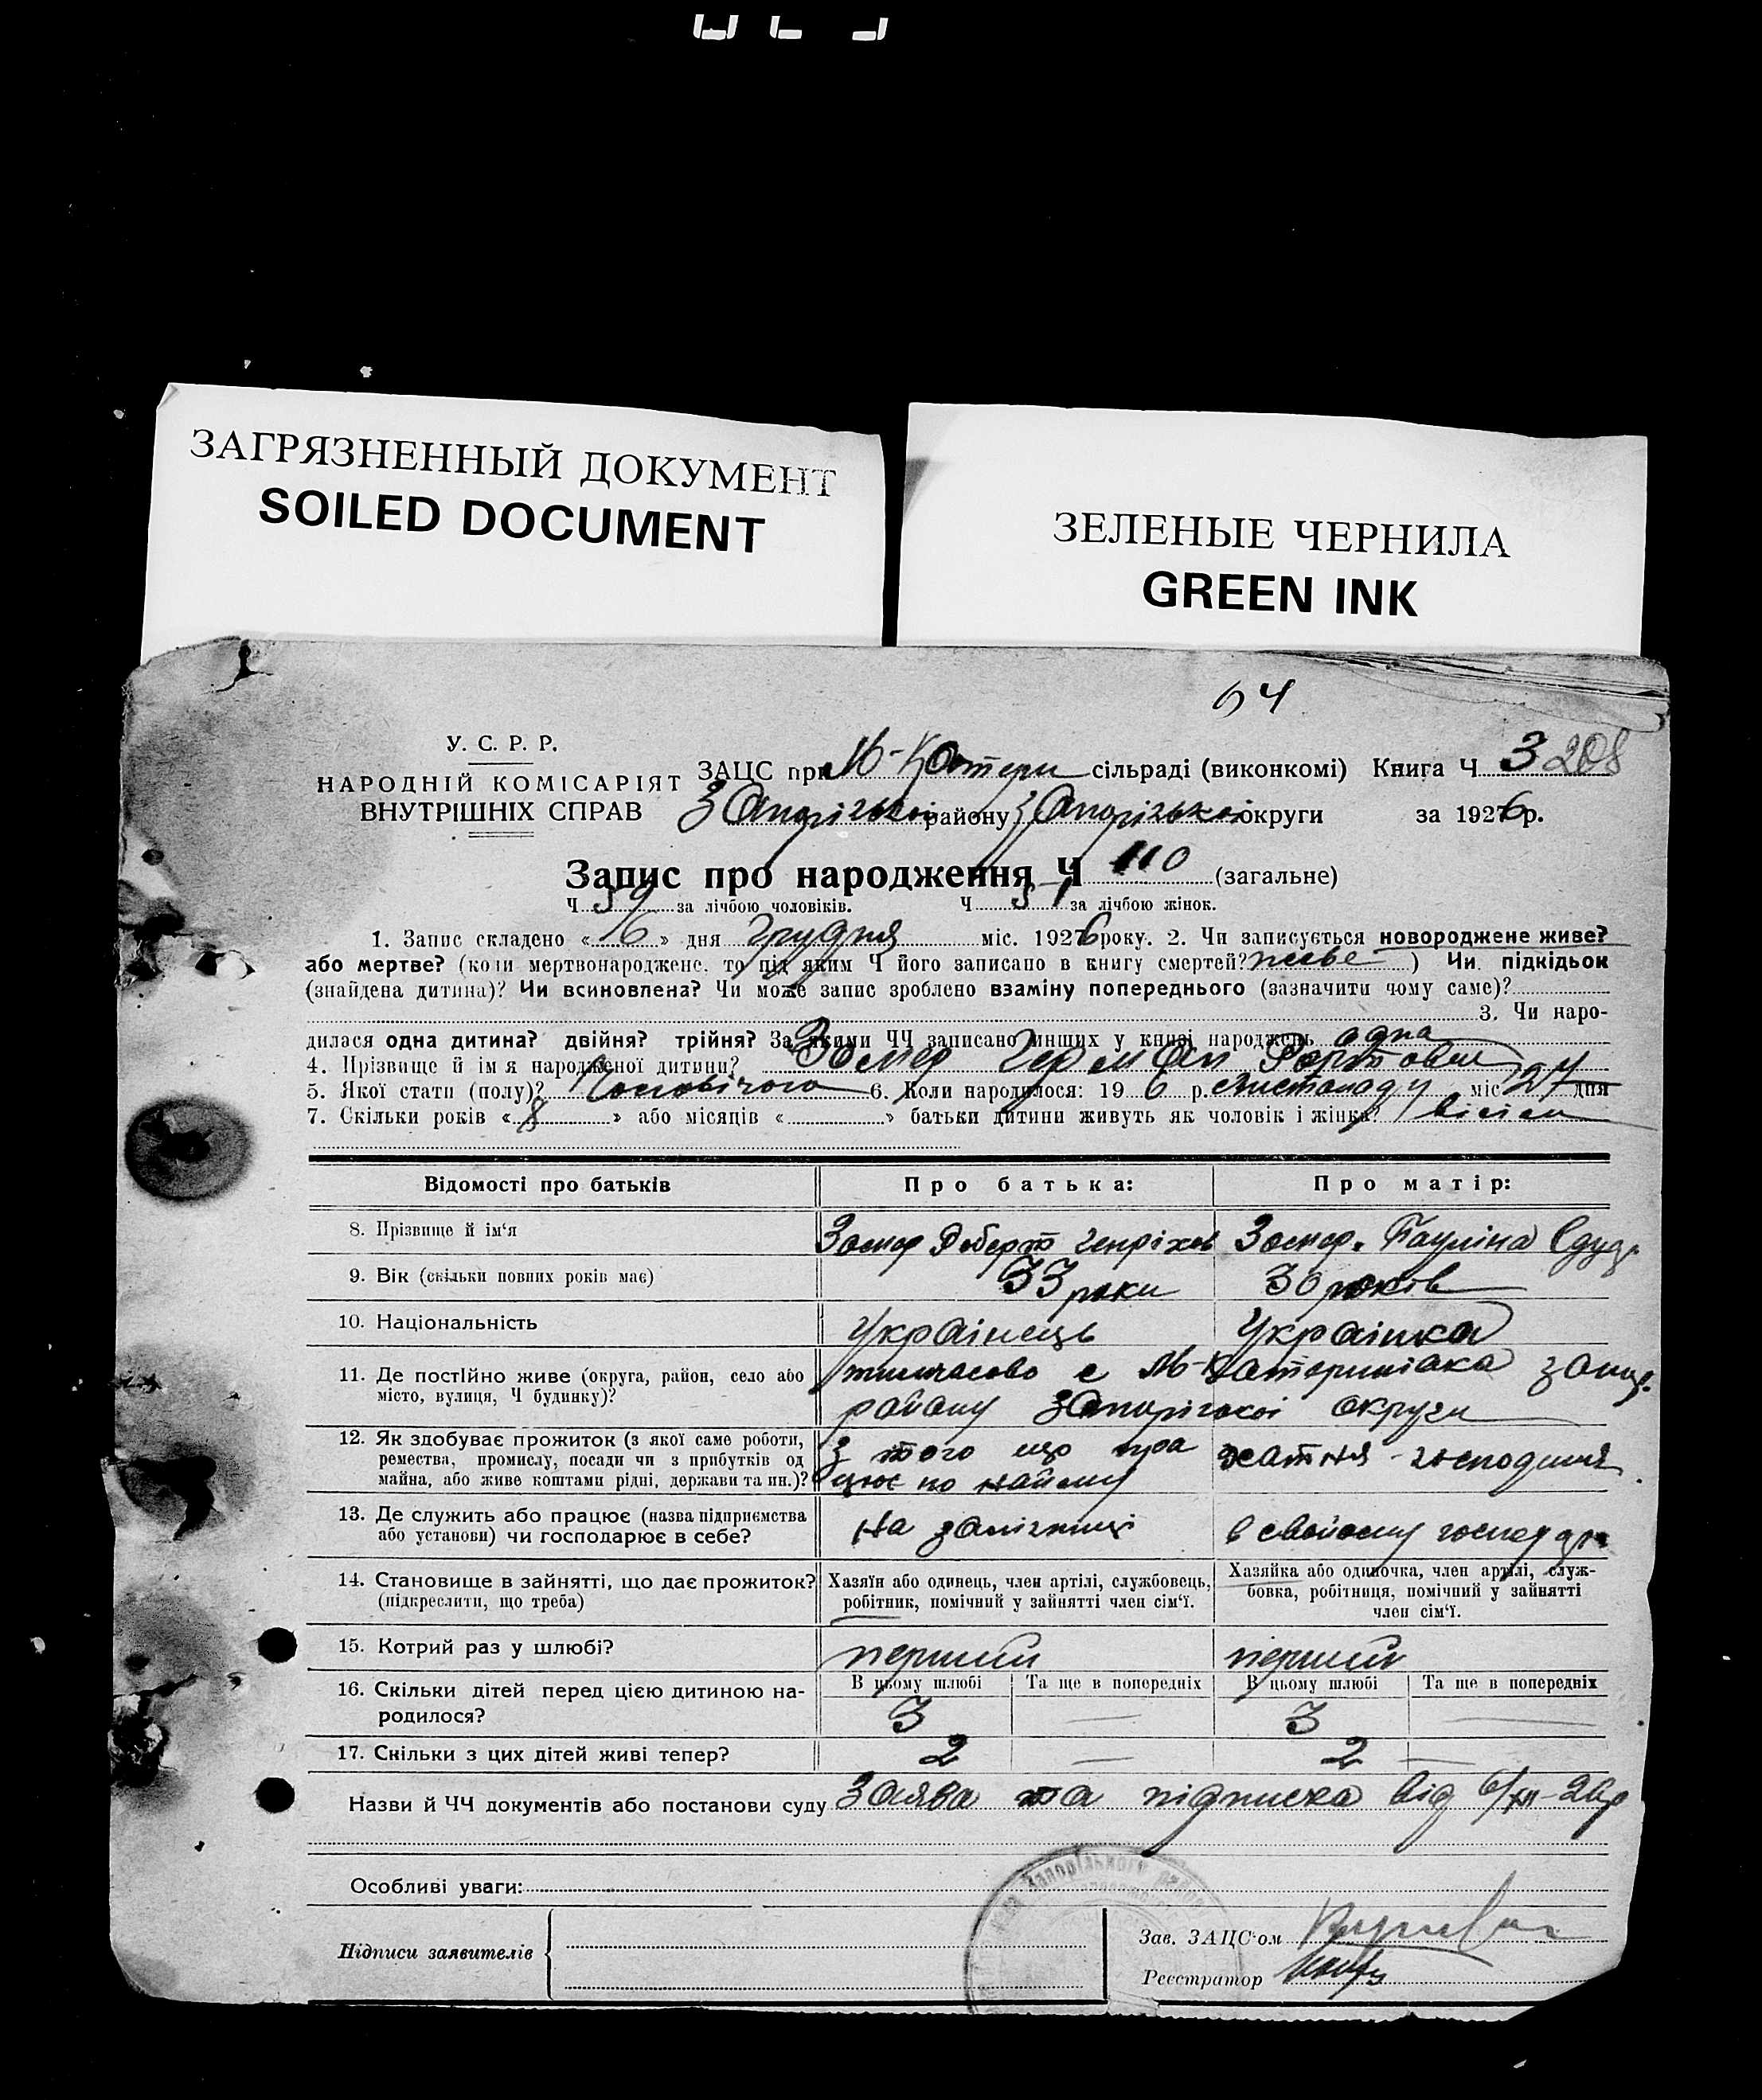 ЗАГРЯЗНЕННЫЙ ДОКУМЕНТ
SOILED DOCUMENT
ЗЕЛЕНЫЕ ЧЕРНИЛА
GREEN INK
У. С. Р. Р.
НАРОДНІЙ КОМІСАРІЯТ
ВНУТРІШНІХ СПРАВ
ЗАЦС при М-Катери сільраді (виконкомі) Книга Ч 3 208
Запорізької району Запорізької округи за 1926 р.
Запис про народження Ч 110 (загальне)
Ч 59 за лічбою чоловіків. Ч 51 за лічбою жінок.
1. Запис складено « 6 » дня грудня міс. 1926 року. 2. Чи записується новороджене живе?
або мертве? (коли мертвонароджене, то під яким Ч його записано в книгу смертей? живе ) Чи підкідьок
(знайдена дитина)? Чи всиновлена? Чи може запис зроблено взаміну попереднього (зазначити чому саме)?
3. Чи наро-
дилася одна дитина? двійня? трійня? За якими ЧЧ записано инших у книзі народжень одна
4. Прізвище й ім'я народженої дитини? Герман
5. Якої стати (полу)? Чоловічого 6. Коли народилося: 19 6 р. Листопаду міс. 27 дня
7. Скільки років « 8 » або місяців « » батьки дитини живуть як чоловік і жінка? вісім
Відомості про батьків Про батька: Про матір:
8. Прізвище й ім'я Роберт Генріхов Пауліна
9. Вік (скільки повних років має) 33 роки 30 років
10. Національність Українець Українка
11. Де постійно живе (округа, район, село або місто, вулиця, Ч будинку)? тимчасово с М-Катеринівка Запор.
району Запорізької округи
12. Як здобуває прожиток (з якої саме роботи, ремества, промислу, посади чи з прибутків од майна, або живе коштами рідні, держави та ин.)? з того що пра
цює по найому хатня - господиня
13. Де служить або працює (назва підприємства або установи) чи господарює в себе? На залізниці в свойому господар
14. Становище в зайнятті, що дає прожиток? (підкреслити, що треба) Хазяїн або одинець, член артілі, службовець, робітник, помічний у зайнятті член сім'ї. Хазяйка або одиночка, член артілі, служ-
бовка, робітниця, помічний у зайнятті
член сім'ї.
15. Котрий раз у шлюбі? перший перший
16. Скільки дітей перед цією дитиною на-
родилося? В цьому шлюбі 3 Та ще в попередніх — В цьому шлюбі 3 Та ще в попередніх —
17. Скільки з цих дітей живі тепер? 2 — 2 —
Назви й ЧЧ документів або постанови суду Заява та підписка від 6/XII-26р
Особливі уваги:
Підписи заявителів
Зав. ЗАЦС'ом
Реєстратор